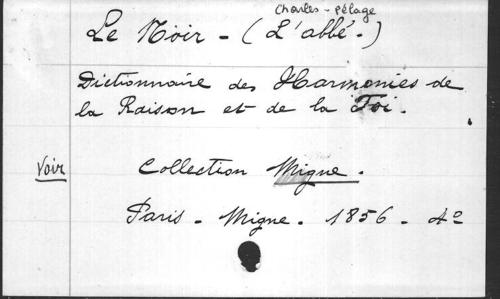 Charles-pélage
Le Noir - (L'abbé-)
Dictionnaire des Harmonies de
la Raison et de la Foi.
Voir Collection Migne.
Paris - Migne - 1856 - 4º